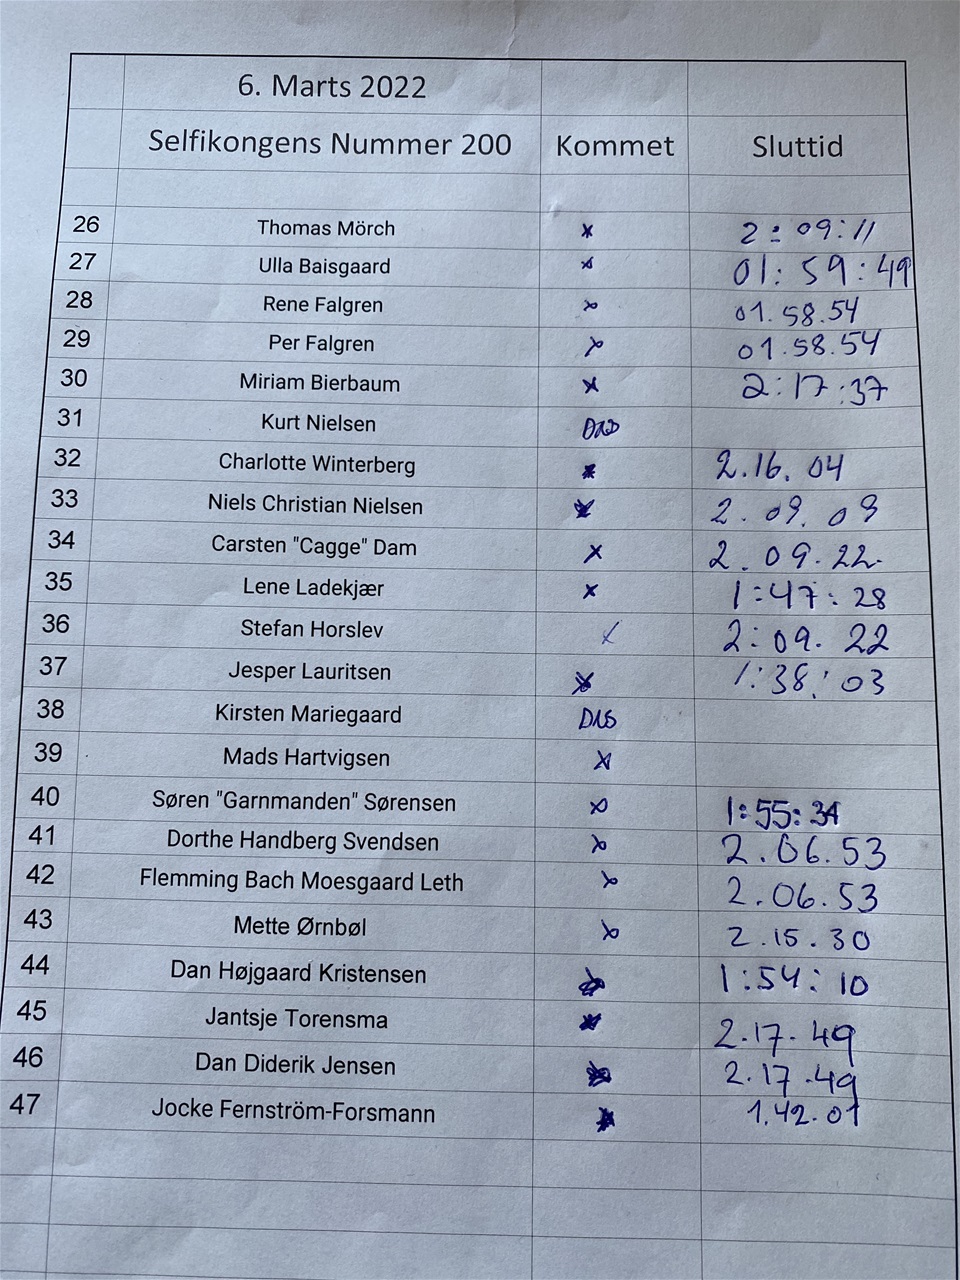 6. Marts 2022
Selfikongens Nummer 200 Kommet Sluttid
26 Thomas Mörch x 2:09:11
27 Ulla Baisgaard x 01:59:49
28 Rene Falgren x 01.58.54
29 Per Falgren x 01.58.54
30 Miriam Bierbaum x 2:17:37
31 Kurt Nielsen
32 Charlotte Winterberg x 2.16.04
33 Niels Christian Nielsen x 2.09.09
34 Carsten "Cagge" Dam x 2.09.22.
35 Lene Ladekjær x 1:47:28
36 Stefan Horslev x 2:09.22
37 Jesper Lauritsen x 1:38:03
38 Kirsten Mariegaard
39 Mads Hartvigsen x
40 Søren "Garnmanden" Sørensen x 1:55:34
41 Dorthe Handberg Svendsen x 2.06.53
42 Flemming Bach Moesgaard Leth x 2.06.53
43 Mette Ørnbøl x 2.15.30
44 Dan Højgaard Kristensen x 1:54:10
45 Jantsje Torensma x 2.17.49
46 Dan Diderik Jensen x 2.17.49
47 Jocke Fernström-Forsmann x 1.42.01